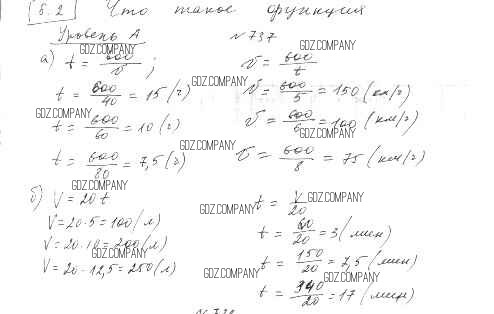 6.2 Что такое функция
Уровень А №737
GDZ.COMPANY
а) t = 600/v ; v = 600/t
GDZ.COMPANY
t = 600/40 = 15 (г) v = 600/5 = 150 (км/г)
GDZ.COMPANY
t = 600/60 = 10 (г) v = 600/6 = 100 (км/г)
GDZ.COMPANY
GDZ.COMPANY
t = 600/80 = 7,5 (г) v = 600/8 = 75 (км/г)
GDZ.COMPANY
GDZ.COMPANY
б) V = 20t t = V/20
GDZ.COMPANY
GDZ.COMPANY
V = 20·5 = 100 (л) t = 60/20 = 3 (мин)
V = 20·10 = 200 (л)
GDZ.COMPANY
V = 20·12,5 = 250 (л) t = 150/20 = 7,5 (мин)
GDZ.COMPANY
GDZ.COMPANY
t = 340/20 = 17 (мин)